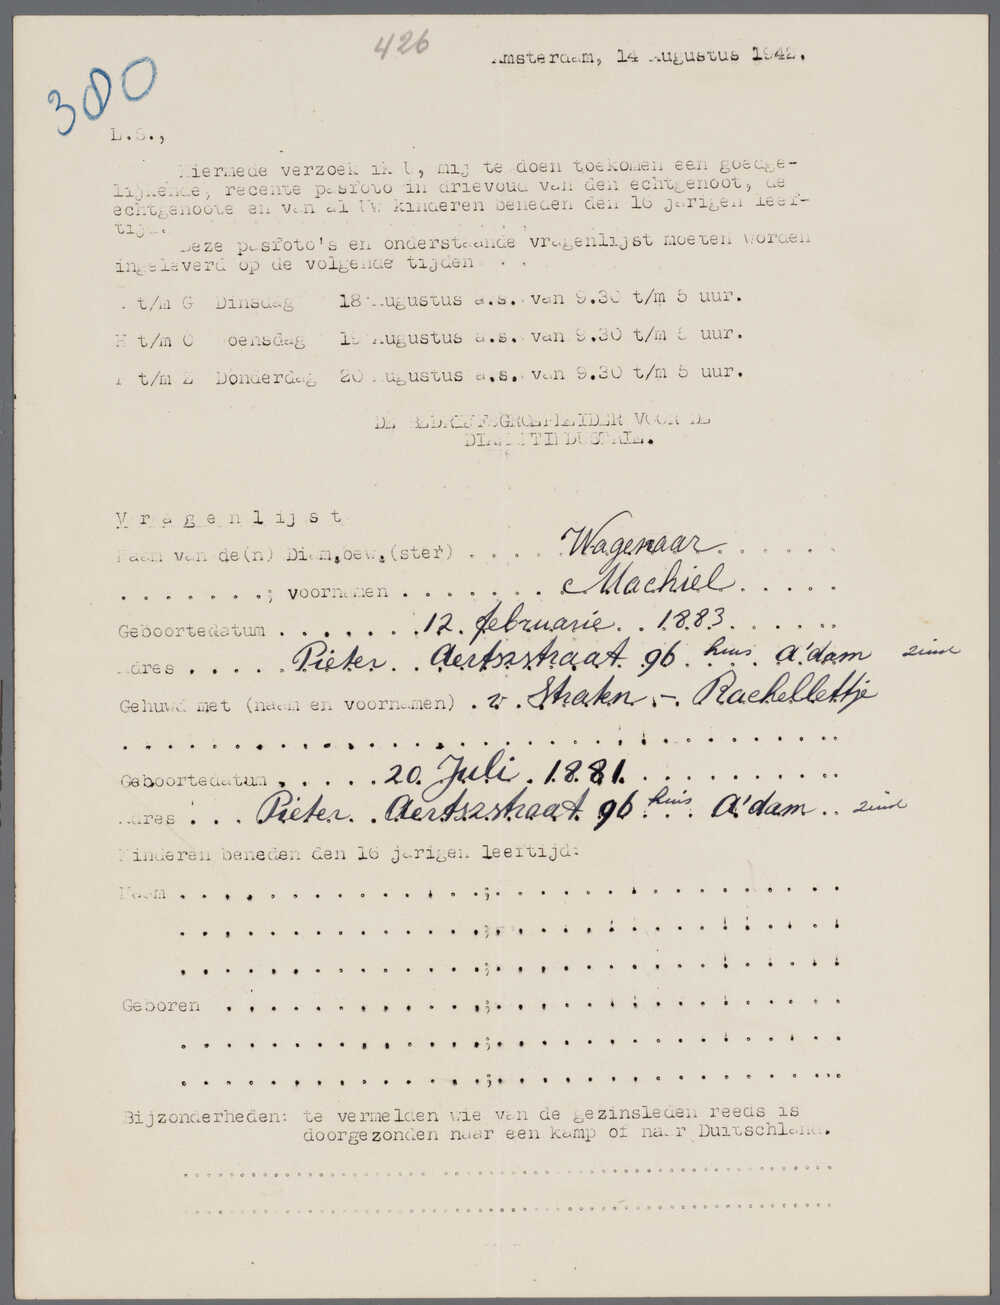 426
380
Amsterdam, 14 Augustus 1942.
L.S.,
Hiermede verzoek ik U, mij te doen toekomen een goedge-
lijkende, recente pasfoto in drievoud van den echtgenoot, de
echtgenoote en van al Uw kinderen beneden den 16 jarigen leef-
tijd.
Deze pasfoto's en onderstaande vragenlijst moeten worden
ingeleverd op de volgende tijden
t/m G Dinsdag 18 Augustus a.s. van 9.30 t/m 5 uur.
H t/m O Woensdag 19 Augustus a.s. van 9.30 t/m 5 uur.
P t/m Z Donderdag 20 Augustus a.s. van 9.30 t/m 5 uur.
DE BEDRIJFSGROEPLEIDER VOOR DE
DIAMANTINDUSTRIE.
Vragenlijst
Naam van de(n) Diam.bew.(ster) . . . . Wagenaar . . . . . .
. . . . . . .; voornamen . . . . . . . Machiel . . . . .
Geboortedatum . . . . . . . 12 februarie . . 1883 . . . . . .
Adres . . . . . Pieter . . Aertszstraat 96 huis A'dam zuid
Gehuwd met (naam en voornamen) . v. Straten - Rachellettje
. . . . . . . . . . . . . . . . . . . . . . . . . . . . . . . . . .
Geboortedatum . . . . . 20 Juli . 1881. . . . . . . . . . .
Adres . . . Pieter . . Aertszstraat 96 huis A'dam . . zuid
Kinderen beneden den 16 jarigen leeftijd:
Naam . . . . . . . . . . . . . .;. . . . . . . . . . . . . . .
. . . . . . . . . . . . . .;. . . . . . . . . . . . . . .
. . . . . . . . . . . . . .;. . . . . . . . . . . . . . .
Geboren . . . . . . . . . . . .;. . . . . . . . . . . . . . .
. . . . . . . . . . . . . .;. . . . . . . . . . . . . . .
. . . . . . . . . . . . . .;. . . . . . . . . . . . . . .
Bijzonderheden: te vermelden wie van de gezinsleden reeds is
doorgezonden naar een kamp of naar Duitschland.
. . . . . . . . . . . . . . . . . . . . . . . . . . . . . .
. . . . . . . . . . . . . . . . . . . . . . . . . . . . . .